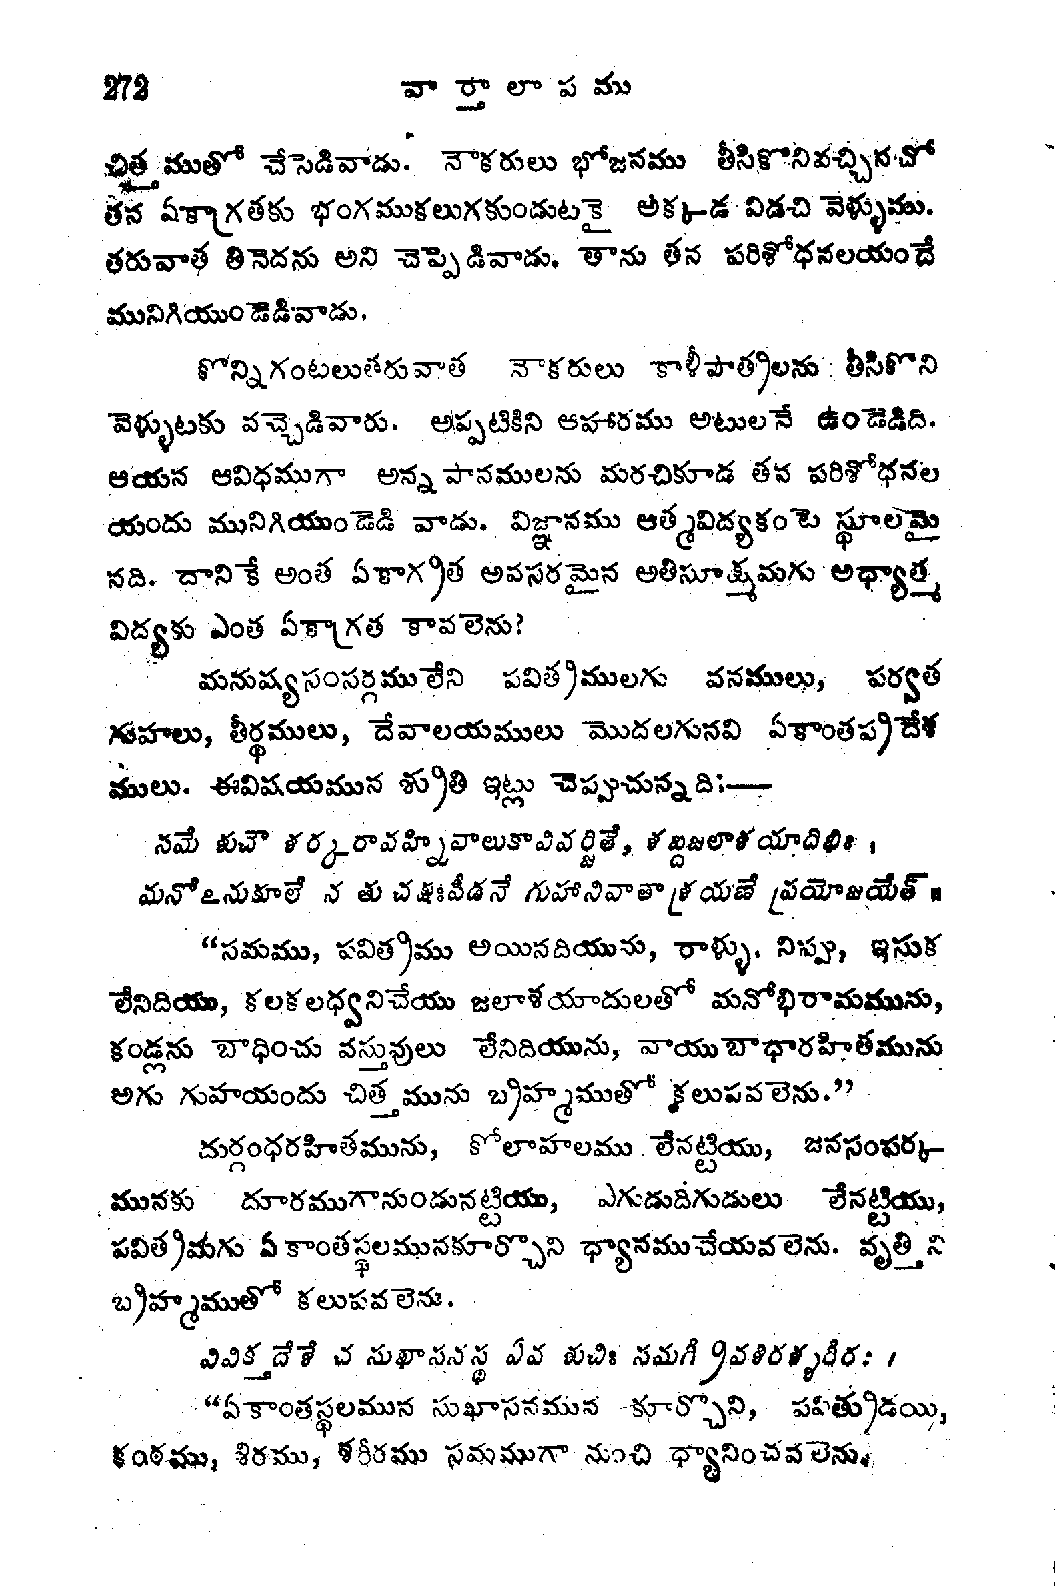 272 వార్తాలాపము
చిత్తముతో చేసెడివాడు. నౌకరులు భోజనము తీసికొనివచ్చినచో
తన ఏకాగ్రతకు భంగముకలుగకుండుటకై అక్కడ విడచి వెళ్ళుము.
తరువాత తినెదను అని చెప్పెడివాడు. తాను తన పరిశోధనలయందే
మునిగియుండెడివాడు.
కొన్నిగంటలుతరువాత నౌకరులు కాళీపాత్రలను తీసికొని
వెళ్ళుటకు వచ్చెడివారు. అప్పటికిని ఆహారము అటులనే ఉండెడిది.
ఆయన ఆవిధముగా అన్నపానములను మరచికూడ తన పరిశోధనల
యందు మునిగియుండెడి వాడు. విజ్ఞానము ఆత్మవిద్యకంటె స్థూలమై
నది. దానికే అంత ఏకాగ్రత అవసరమైన అతిసూక్ష్మమగు అధ్యాత్మ
విద్యకు ఎంత ఏకాగ్రత కావలెను?
మనుష్యసంసర్గములేని పవిత్రములగు వనములు, పర్వత
గుహలు, తీర్థములు, దేవాలయములు మొదలగునవి ఏకాంతప్రదేశ
ములు. ఈవిషయమున శ్రుతి ఇట్లు చెప్పుచున్నది:—
సమే శుచౌ శర్కరావహ్నివాలుకావివర్జితే, శబ్దజలాశయాదిభిః ।
మనోఽనుకూలే న తు చక్షుఃపీడనే గుహానివాతాశ్రయణే ప్రయోజయేత్ ॥
“సమము, పవిత్రము అయినదియును, రాళ్ళు, నిప్పు, ఇసుక
లేనిదియు, కలకలధ్వనిచేయు జలాశయాదులతో మనోభిరామమును,
కండ్లను బాధించు వస్తువులు లేనిదియును, వాయుబాధారహితమును
అగు గుహయందు చిత్తమును బ్రహ్మముతో కలుపవలెను.”
దుర్గంధరహితమును, కోలాహలము లేనట్టియు, జనసంపర్క
మునకు దూరముగానుండునట్టియు, ఎగుడుదిగుడులు లేనట్టియు,
పవిత్రమగు ఏకాంతస్థలమునకూర్చొని ధ్యానముచేయవలెను. వృత్తిని
బ్రహ్మముతో కలుపవలెను.
వివిక్తదేశే చ సుఖాసనస్థ ఏవ శుచిః సమగ్రీవశిరశ్శరీరః ।
“ఏకాంతస్థలమున సుఖాసనమున కూర్చొని, పవిత్రుడయి,
కంఠము, శిరము, శరీరము సమముగా నుంచి ధ్యానించవలెను.